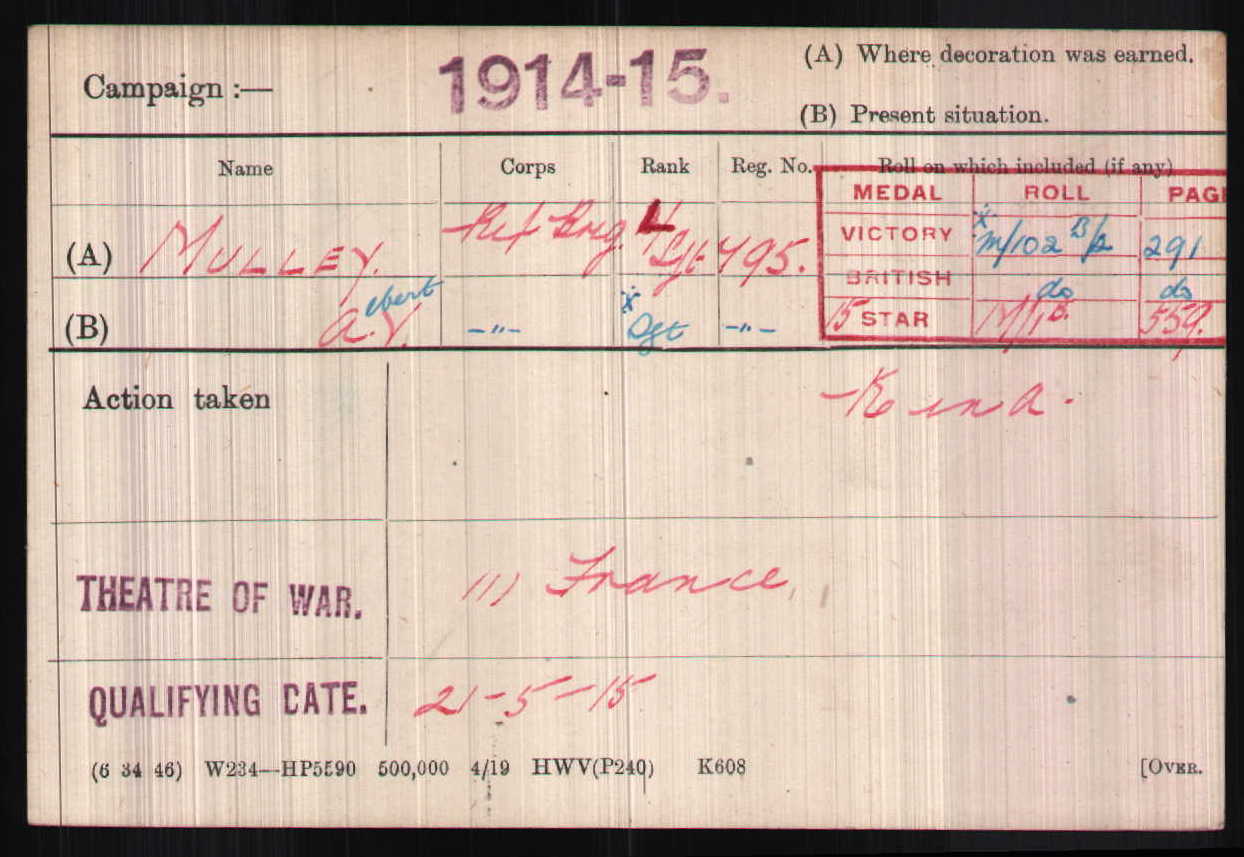 Campaign :— 1914-15. (A) Where decoration was earned.
(B) Present situation.
Name Corps Rank Reg. No. Roll on which included (if any)
MEDAL ROLL PAGE
(A) MULLEY. Rif Brig L/Sgt 495. VICTORY * M/102 B/2 291
BRITISH do do
(B) Albert A.Y. —"— * Sgt —"— 15 STAR M/1B. 559.
Action taken K in a.
THEATRE OF WAR. (1) France.
QUALIFYING DATE. 21-5-15
(6 34 46) W234—HP5590 500,000 4/19 HWV(P240) K608 [OVER.